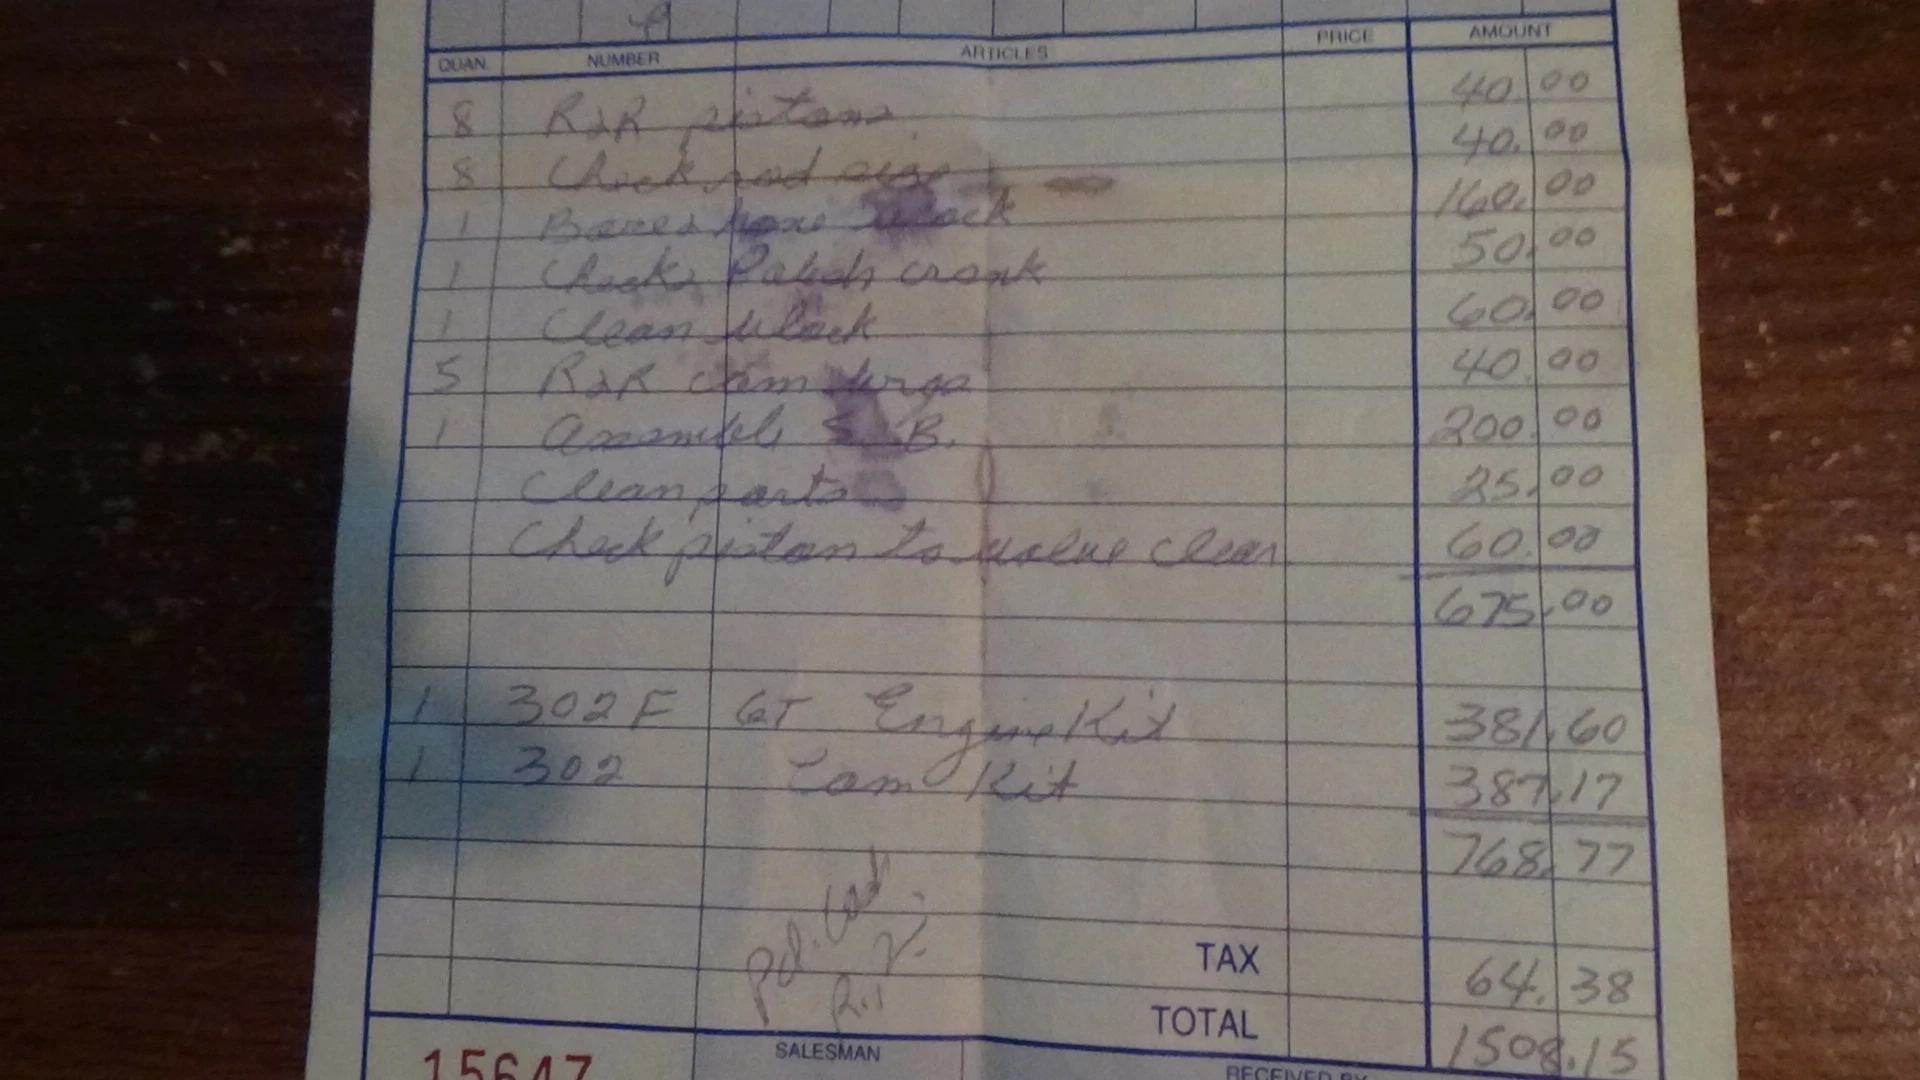 QUAN. NUMBER ARTICLES PRICE AMOUNT
8 R&R pistons 40.00
8 Check rod size 40.00
1 Bore & hone block 160.00
1 Check & Polish crank 50.00
1 Clean block 60.00
5 R&R cam brgs 40.00
1 Assemble S.B. 200.00
Clean parts 25.00
Check piston to valve clear 60.00
675.00
1 302F GT Engine Kit 381.60
1 302 Cam Kit 387.17
768.77
Pd.
TAX 64.38
TOTAL 1508.15
15647 SALESMAN RECEIVED BY